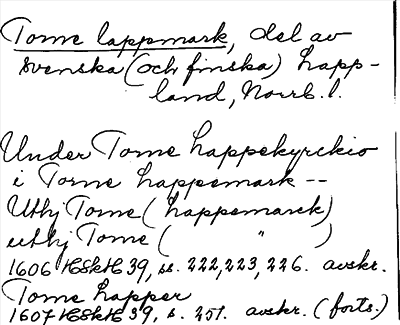 Torne lappmark, del av
svenska (och finska) Lapp-
land, Norrb. l.
Under Torne Lappekyrckio
i Torne Lappemark --
Uthj Torne (Lappemarck)
uthj Torne ( " )
1606 HSkH 39, ss. 222, 223, 226. avskr.
Torne Lapper
1607 HSkH 39, s. 251. avskr. (forts.)